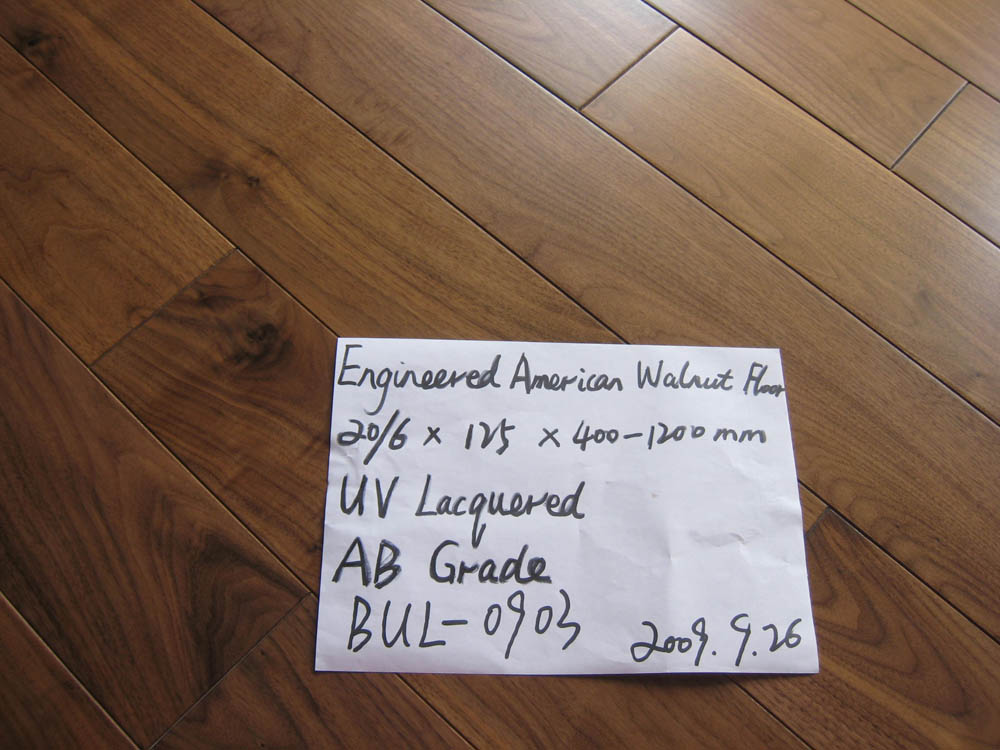 Engineered American Walnut Floor
20/6 × 125 × 400-1200 mm
UV Lacquered
AB Grade
BUL-0903
2009.9.26